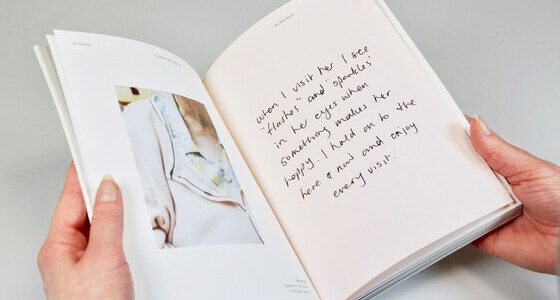 when I visit her I see
"flashes" and "sparkles"
in her eyes when
something makes her
happy I hold on to the
here & now and enjoy
every visit.